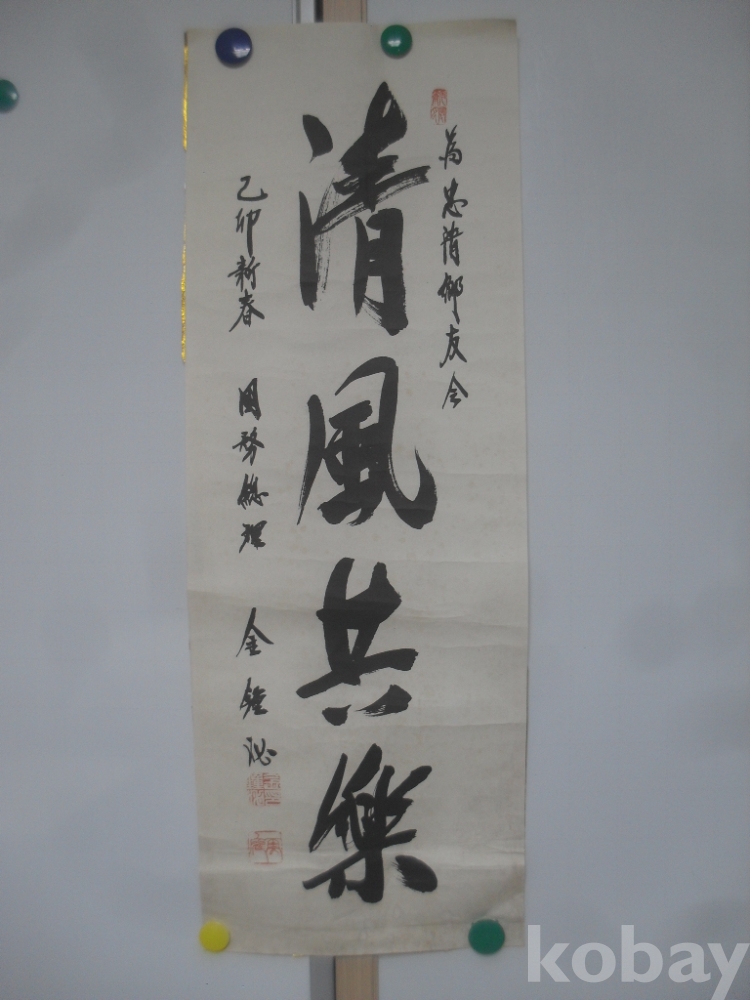 為忠清鄉友会
清風共樂
己卯新春 国務總理 金鍾泌
kobay